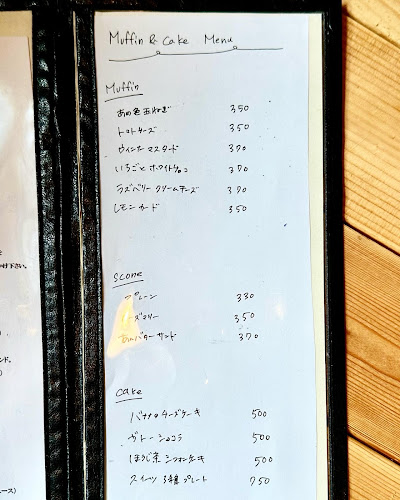 Muffin & Cake Menu
Muffin
あめ色玉ねぎ 350
トマトチーズ 350
ウィンナーマスタード 370
いちごとホワイトチョコ 370
ラズベリークリームチーズ 370
レモンカード 350
scone
プレーン 330
ローズマリー 350
あんバターサンド 370
cake
バナナチーズケーキ 500
ガトーショコラ 500
ほうじ茶シフォンケーキ 500
スイーツ3種プレート 750
下さい。
ンド。
ース)